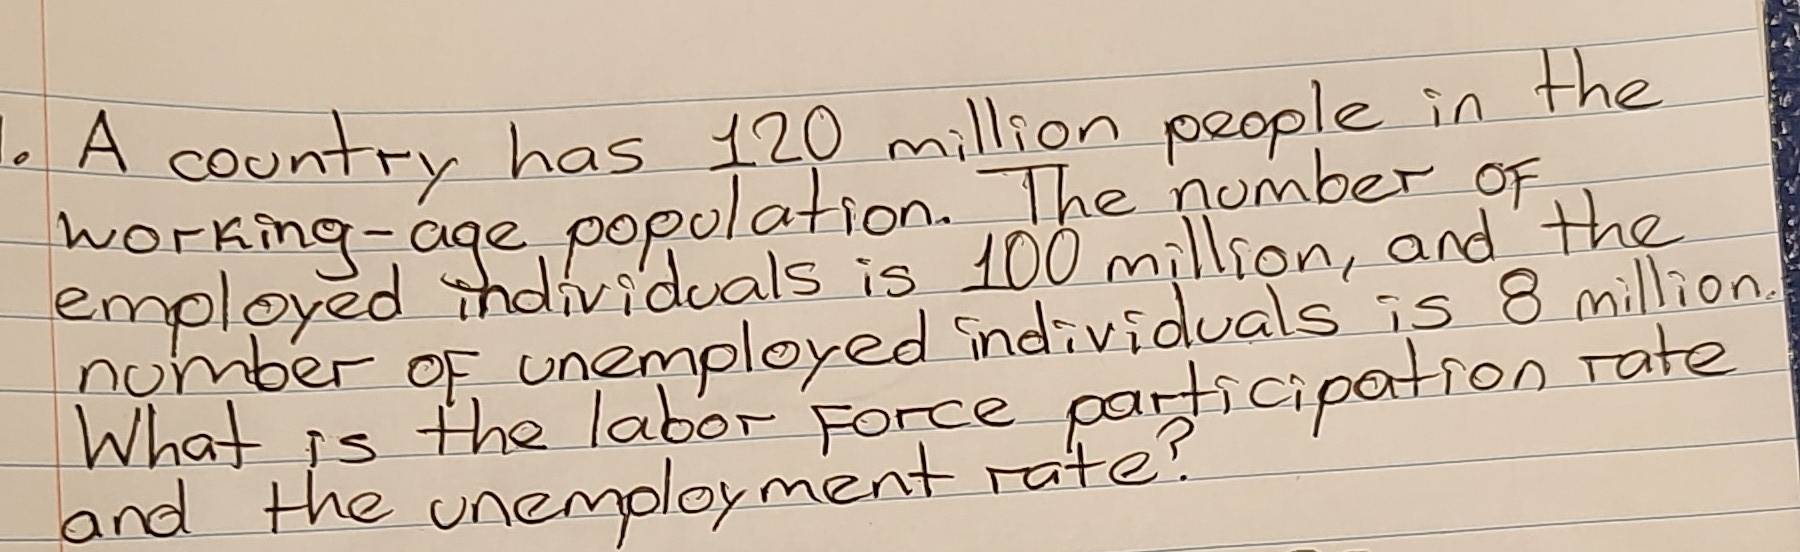 1. A country has 120 million people in the
working-age population. The number of
employed individuals is 100 million, and the
number of unemployed individuals is 8 million.
What is the labor force participation rate
and the unemployment rate?